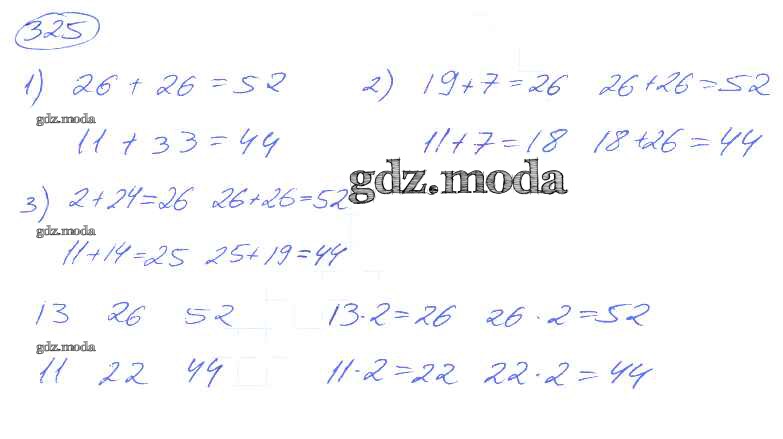 325
1) 26 + 26 = 52 2) 19 + 7 = 26 26 + 26 = 52
gdz.moda
11 + 33 = 44 11 + 7 = 18 18 + 26 = 44
gdz.moda
3) 2 + 24 = 26 26 + 26 = 52
gdz.moda
11 + 14 = 25 25 + 19 = 44
13 26 52 13 · 2 = 26 26 · 2 = 52
gdz.moda
11 22 44 11 · 2 = 22 22 · 2 = 44